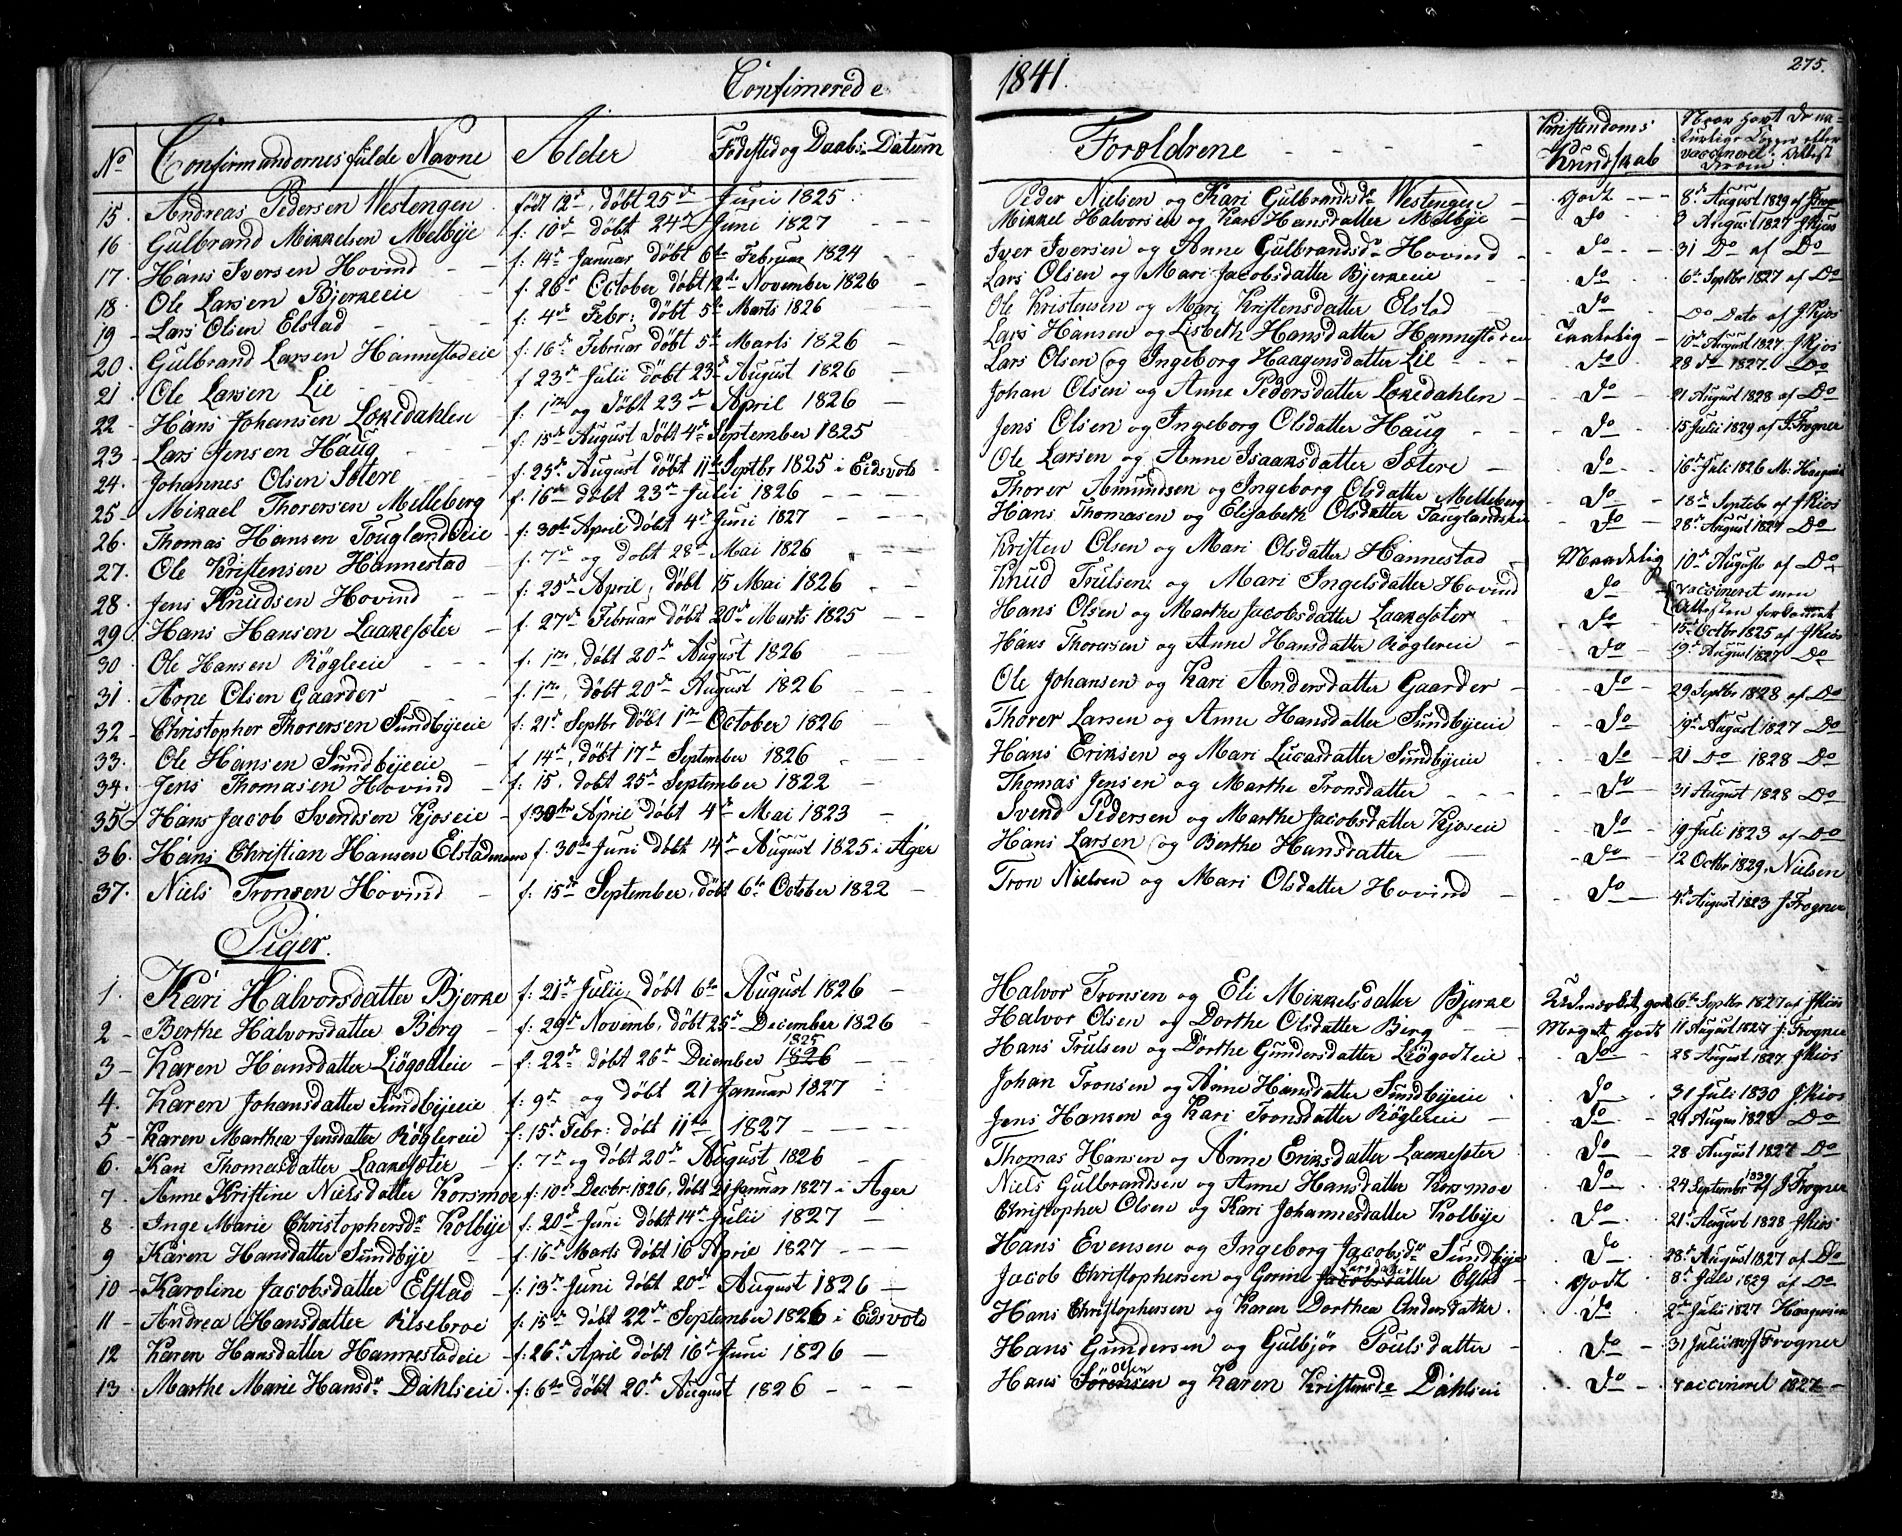 Confimerede 1841. 275.
No Confirmandernes fulde Navne Alder Födested og Daabs-Datum Forældrene Kristendoms Kundskab
15. Andreas Pedersen Westengen född 12te, döbt 25de Juni 1825. Peder Nielsen og Kari Gulbrandsdr Westengen godt 8de August 1829 af Frogner
16. Gulbrand Mikkelsen Melbÿe f: 10de döbt 24de Juni 1827 Mikkel Halvorsen og Kari Hansdatter Melbÿe Do 3 August 1827 J Kjos
17. Hans Iversen Hovind f: 14de Januar döbt 6te Februar 1824 Iver Iversen og Anne Gulbrandsdr Hovind Do 31 Do af Do
18. Ole Larsen Bjerkeeie f: 26de October döbt 12te November 1826 Lars Olsen og Mari Jacobsdatter Bjerkeeie Do 6te Septbr 1827 af Do
19. Lars Olsen Elstad f: 4de Febr: döbt 5te Marts 1826 Ole Kristensen og Mari Kristensdatter Elstad Do Do Dato af J Kjos
20. Gulbrand Larsen Hannestadeie f: 16de Februar döbt 5te Marts 1826 Lars Hansen og Lisbeth Hansdatter Hannestadeie Taalelig 10de August 1827 J Kios
21 Ole Larsen Lie f 23de Julii döbt 23de August 1826 Lars Olsen og Ingeborg Haagensdatter Lie Do 28 do 1827 Do
22 Hans Johansen Lokedahlen f: 1ste og döbt 23de April 1826 Johan Olsen og Anne Pedersdatter Lokedahlen Do 21 August 1828 af Do
23 Lars Jensen Haug f: 15de August döbt 4de September 1825 Jens Olsen og Ingeborg Olsdatter Haug Do 15 Julii 1829 af J. Frogner
24. Johannes Olsen Sætere f: 25de August döbt 11te Septbr 1825 i Eidsvold Ole Larsen og Anne Isaaksdatter Sætere Do 16de Juli 1826
25 Mikael Thorersen Melleberg f: 16de döbt 23de Julii 1826 Thorer Amundsen og Ingeborg Olsdatter Melleberg Do 18de Septebr af J Kios
26. Thomas Hansen Touglandseie f: 30te April döbt 4de Juni 1827 Hans Thomasen og Elisabeth Olsdatter Do 28de August 1827 Do
27. Ole Kristensen Hannestad f: 7de og döbt 28de Mai 1826 Kristen Olsen og Mari Olsdatter Hannestad Maadelig 10de August af Do
28. Jens Knudsen Hovind f: 25de April, döbt 15 Mai 1826 Knud Trulsen og Mari Ingelsdatter Hovind Do vaccineret men Attesten forkommet
29. Hans Hansen Laakesæter f: 27de Februar döbt 20de Marts 1825 Hans Olsen og Marthe Jacobsdatter Laakesæter Do 15de Octbr 1825 af J Kios
30. Ole Hansen Rögleeie f: 1ste, döbt 20de August 1826 Hans Thoresen og Anne Hansdatter Röglereie Do 19de August 1827 Do
31. Arne Olsen Gaarder f: 1ste, döbt 20de August 1826 Ole Johansen og Kari Andersdatter Gaarder Do 29 Septbr 1828 af Do
32 Christopher Thorersen Sundbÿeeie f: 21de Septbr döbt 1ste October 1826 Thorer Larsen og Anne Hansdatter Sundbÿeeie Do 19de August 1827 Do
33. Ole Hansen Sundbÿeeie f 14de, döbt 17de September 1826 Hans Eriksen og Mari Lucasdatter Sundbÿeeie Do 21 Do 1828 Do
34. Jens Thomasen Hovind f: 15, döbt 25de September 1822 Thomas Jensen og Marthe Tronsdatter Do 31 August 1828 Do
35 Hans Jacob Svendsen Kjoseie f: 30te April döbt 4de Mai 1823 Svend Pedersen og Marthe Jacobsdatter Kjoseie Do 19 Juli 1823 af Do
36. Hans Christian Hansen f: 30te Juni döbt 14de August 1825 i Ager Hans Larsen og Berthe Hansdatter Do 12 Octbr 1829. Nielsen
37. Niels Tronsen Hovind f: 15de September, döbt 6te October 1822 Tron Nielsen og Mari Olsdatter Hovind Do 4de August 1823 J Frogner
Piger.
1. Kari Halvorsdatter Bjerke f: 21de Julii, döbt 6te August 1826 Halvor Tronsen og Eli Mikkelsdatter Bjerke godt 6te Septbr 1827 af J Kios
2 Berthe Halvorsdatter Berg f: 29de Novemb, döbt 25de December 1826 Halvor Olsen og Dorthe Olsdatter Berg Meget godt 11 August 1827 J. Frogner
3 Karen Hansdatter Liögodteie f: 22de döbt 26de December 1826 1825 Hans Trulsen og Dorthe Gundersdatter Liögodteie Do 28 August 1827 J Kios
4. Karen Johansdatter Sundbÿeeie f: 9de og döbt 21 Januar 1827 Johan Tronsen og Anne Hansdatter Sundbÿeeie Do 31 Juli 1830 J Kios
5 Karen Marthea Jensdatter Röglereie f: 15de Febr: döbt 11te 1827 Jens Hansen og Kari Tronsdatter Röglereie Do 29 Augus 1828 Do
6. Kari Thomasdatter Laakesæter f: 7de og döbt 20de August 1826 Thomas Hansen og Anne Eriksdatter Laakesæter Do 28 August 1827 Do
7 Anne Kristine Nielsdatter Korsmoe f: 10de Decbr. 1826, döbt 21 Januar 1827 i Ager Niels Gulbrandsen og Anne Hansdatter Korsmoe Do 24 September J Frogner
8 Inge Marie Christophersdr Kolbÿe f: 20de Juni döbt 14de Julii 1827 Christopher Olsen og Kari Johannesdatter Kolbÿe Do 21de August 1828 J Kios
9 Karen Hansdatter Sundbÿe f: 16de Marts döbt 16 Aprie 1827 Hans Evensen og Ingeborg Jacobsdr Sundbÿe Do 28de August 1827 af Do
10 Karoline Jacobsdatter Elstad f: 13de Juni döbt 20de August 1826 Jacob Christophersen og Gorine Jacobsdatter Larsdatter Elstad godt 8de Juli 1829 af Do
11 Andrea Hansdatter Pilsebroe f: 15de döbt 22de September 1826 i Eidsvold Hans Christophersen og Karen Dorthea Andersdatter Do 2de Julii 1827
12 Karen Hansdatter Hannestadeie f: 26de April döbt 16de Juni 1826 Hans Gundersen og Gulbjör Poulsdatter Do 31 Julii J Frogner
13. Marthe Marie Hansdr Dahlseie f: 6te döbt 20de August 1826 Hans Sörensen Olsen og Karen Kristensdr Dahlseie Do vaccineret 1827